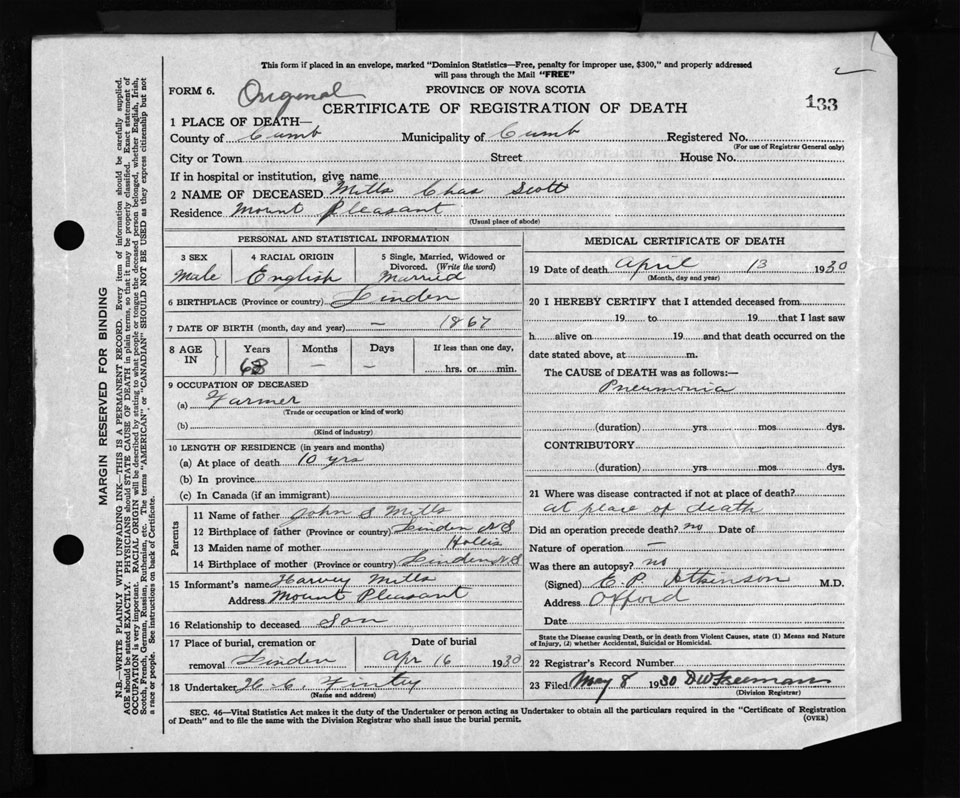 This form if placed in an envelope, marked "Dominion Statistics—Free, penalty for improper use, $300," and properly addressed
will pass through the Mail "FREE"
FORM 6. Original PROVINCE OF NOVA SCOTIA
CERTIFICATE OF REGISTRATION OF DEATH 133
1 PLACE OF DEATH—
County of Cumb Municipality of Cumb Registered No.
(For use of Registrar General only)
City or Town Street House No.
If in hospital or institution, give name
2 NAME OF DECEASED Mills Chas Scott
Residence Mount Pleasant
(Usual place of abode)
PERSONAL AND STATISTICAL INFORMATION
3 SEX 4 RACIAL ORIGIN 5 Single, Married, Widowed or
Divorced. (Write the word)
Male English Married
6 BIRTHPLACE (Province or country) Linden
7 DATE OF BIRTH (month, day and year) — 1867
8 AGE IN Years Months Days If less than one day,
— — hrs. or min.
9 OCCUPATION OF DECEASED
(a) Farmer
(Trade or occupation or kind of work)
(b)
(Kind of industry)
10 LENGTH OF RESIDENCE (in years and months)
(a) At place of death 10 yrs
(b) In province
(c) In Canada (if an immigrant)
Parents
11 Name of father John S Mills
12 Birthplace of father (Province or country) Linden N S
13 Maiden name of mother Hollis
14 Birthplace of mother (Province or country) Linden N.S
15 Informant's name Harvey Mills
Address Mount Pleasant
16 Relationship to deceased Son
17 Place of burial, cremation or Date of burial
removal Linden Apr 16 1930
18 Undertaker H. C.
(Name and address)
MEDICAL CERTIFICATE OF DEATH
19 Date of death April 13 1930
(Month, day and year)
20 I HEREBY CERTIFY that I attended deceased from
19 to 19 that I last saw
h alive on 19 and that death occurred on the
date stated above, at m.
The CAUSE of DEATH was as follows:—
Pneumonia
(duration) yrs mos dys.
CONTRIBUTORY
(duration) yrs mos dys.
21 Where was disease contracted if not at place of death?
at place of death
Did an operation precede death? no Date of
Nature of operation —
Was there an autopsy? no
(Signed) E. P. Atkinson M.D.
Address Oxford
Date
State the Disease causing Death, or in death from Violent Causes, state (1) Means and Nature
of Injury, (2) whether Accidental, Suicidal or Homicidal.
22 Registrar's Record Number
23 Filed May 8 1930 D W Freeman
(Division Registrar)
SEC. 46—Vital Statistics Act makes it the duty of the Undertaker or person acting as Undertaker to obtain all the particulars required in the "Certificate of Registration
of Death" and to file the same with the Division Registrar who shall issue the burial permit. (OVER)
MARGIN RESERVED FOR BINDING
N.B.—WRITE PLAINLY WITH UNFADING INK—THIS IS A PERMANENT RECORD. Every item of information should be carefully supplied.
AGE should be stated EXACTLY. PHYSICIANS should STATE CAUSE OF DEATH in plain terms, so that it may be properly classified. Exact statement of
OCCUPATION is very important. RACIAL ORIGIN will be described by stating to what people or tongue the deceased person belonged, whether English, Irish,
Scotch, French, German, Russian, Ruthenian, etc. The terms "AMERICAN" or "CANADIAN" SHOULD NOT BE USED as they express citizenship but not
a race or people. See instructions on back of Certificate.